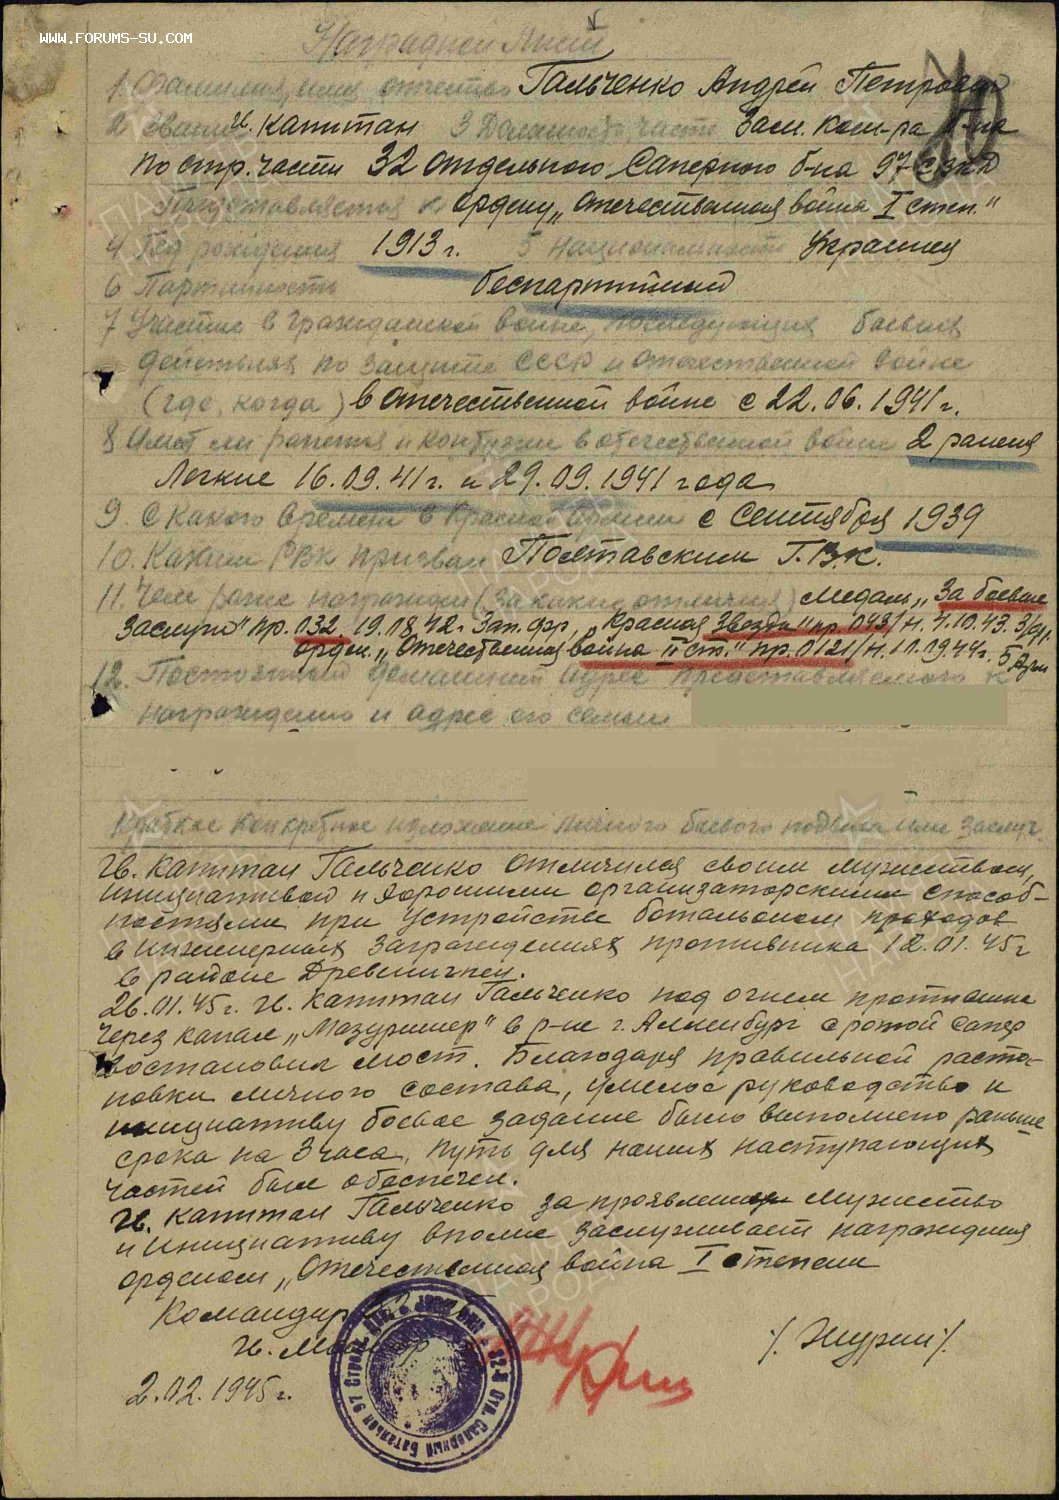 WWW.FORUMS-SU.COM
Наградной Лист
1 Фамилия, имя отчество Гальченко Андрей Петрович
2 Звание гв. капитан 3 Должность, часть Зам. ком-ра б-на
по стр. части 32 отдельного Саперного б-на 97 гв. сд
Представляется к ордену „Отечественная война I степ."
4 Год рождения 1913 г. 5 Национальность Украинец
6 Партийность беспартийный
7 Участие в гражданской войне, последующих боевых
действиях по защите СССР и отечественной войне
(где, когда) в отечественной войне с 22.06.1941 г.
8 Имет ли ранения и контузии в отечественной войне 2 ранения
Легкие 16.09.41 г. и 29.09.1941 года
9. С какого времени в Красной Армии с Сентября 1939
10. Каким РВК призван Полтавским Г.В.К.
11. Чем ранее награжден (за какие отличия) медаль „За боевые
заслуги" пр. 032. Зап. фр, „Красная Звезда" пр. 043/н. 4.10.43.
орден „Отечественная война II ст." пр. 0121/н.
12. Постоянный домашний адрес представляемого к
награждению и адрес его семьи
Краткое конкретное изложение личного боевого подвига или заслуг
Гв. капитан Гальченко отличился своим мужеством,
инициативой и хорошими организаторскими способ-
ностями при устройстве батальоном проходов
в инженерных заграждениях противника 12.01.45 г
в районе
26.01.45 г. гв. капитан Гальченко под огнем противника
через канал в р-не г. с ротой сапер
востановил мост. Благодаря правильной раста-
новки личного состава, умелое руководство и
инициативу боевое задание было выполнено раньше
срока на 3 часа, путь для наших наступающих
частей был обеспечен.
Гв. капитан Гальченко за мужество
и инициативу вполне заслуживает награждения
орденом „Отечественная война I степени
Командир
гв. Майор
/. Журин /.
2.02.1945 г.